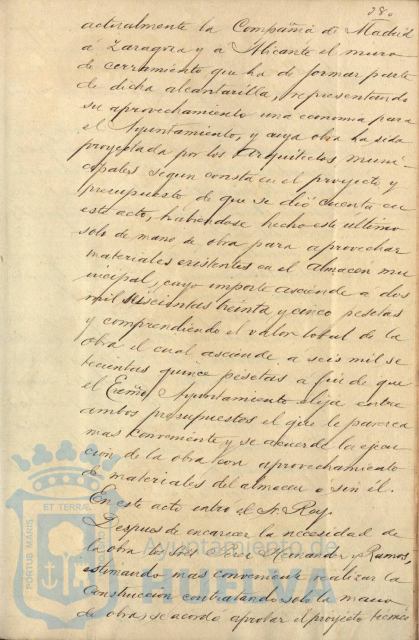 280
actualmente la Compañia de Madrid
a Zaragoza y á Alicante el muro
de cerramiento que ha de formar parte
de dicha alcantarilla, representando
su aprovechamiento una economia para
el Ayuntamiento, y cuya obra ha sido
proyectada por los Arquitectos muni-
cipales segun consta en el proyecto y
presupuesto de que se dió cuenta en
este acto, habiendose hecho este último
solo de mano de obra para aprovechar
materiales existentes en el almacen mu
nicipal, cuyo importe asciende a dos
mil seiscientas treinta y cinco pesetas
y comprendiendo el valor total de la
obra el cual asciende a seis mil se
tecientas quince pesetas a fin de que
el Excmo Ayuntamiento elija entre
ambos presupuestos el que le parezca
mas conveniente y se acuerde la ejecu
cion de la obra con aprovechamiento
de materiales del almacen o sin él.
En este acto entro el Sr. Rey.
Despues de encarecer la necesidad de
la obra los Sres. Hernandez y Ramos,
estimando mas conveniente realizar la
construccion contratando solo la mano
de obra, se acordo aprobar el proyecto
PORTUS MARIS ET TERRAE
Ayuntamiento de